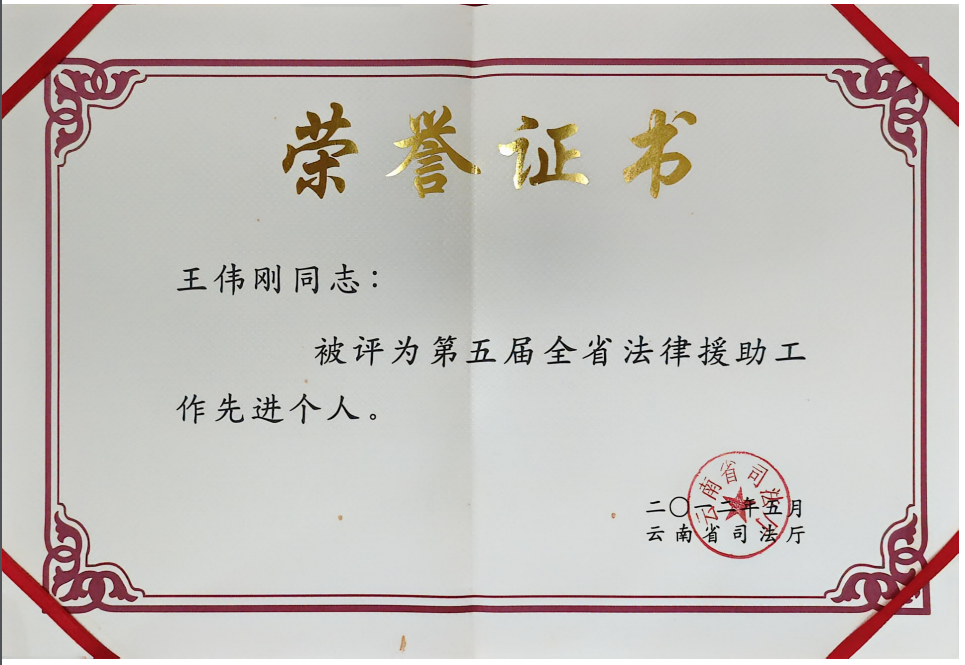 荣誉证书
王伟刚同志：
被评为第五届全省法律援助工
作先进个人。
二〇一二年五月
云南省司法厅
云南省司法厅